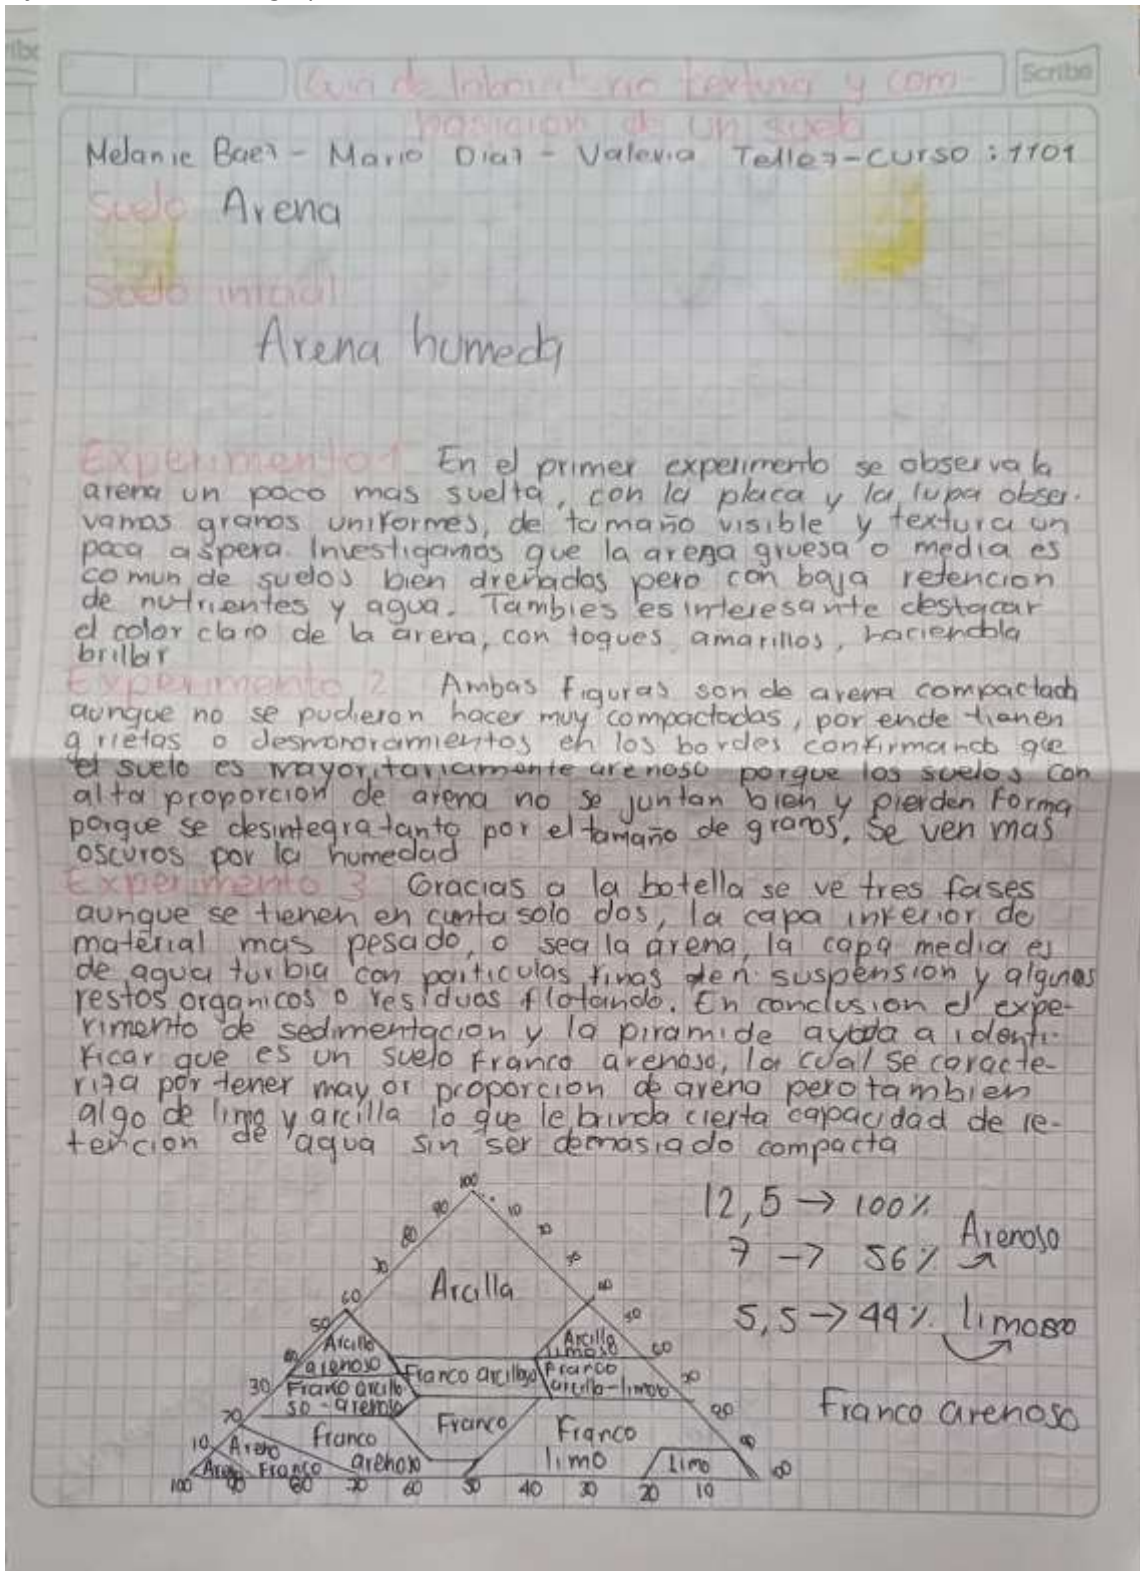 Scribe
Guia de laboratorio textura y com-
posicion de un suelo
Melanie Baez - Mario Diaz - Valeria Tellez - Curso : 1101
Suelo Arena
Suelo inicial
Arena humeda
Experimento 1 En el primer experimento se observa la
arena un poco mas suelta, con la placa y la lupa obser-
vamos granos uniformes, de tamaño visible y textura un
poca aspera. Investigamos que la arena gruesa o media es
comun de suelos bien drenados pero con baja retencion
de nutrientes y agua. Tambies es interesante destacar
el color claro de la arena, con toques amarillos, haciendola
brillar
Experimento 2 Ambas figuras son de arena compactada
aunque no se pudieron hacer muy compactadas, por ende tienen
grietas o desmoronamientos en los bordes confirmando que
el suelo es mayoritariamente arenoso porque los suelos con
alta proporcion de arena no se juntan bien y pierden forma
porque se desintegra tanto por el tamaño de granos. Se ven mas
oscuros por la humedad
Experimento 3 Gracias a la botella se ve tres fases
aunque se tienen en cunta solo dos, la capa inferior de
material mas pesado, o sea la arena, la capa media es
de agua turbia con particulas finas en suspension y algunos
restos organicos o residuos flotando. En conclusion el expe-
rimento de sedimentacion y la piramide ayuda a identi-
ficar que es un suelo franco arenoso, la cual se caracte-
riza por tener mayor proporcion de arena pero tambien
algo de limo y arcilla lo que le brinda cierta capacidad de re-
tencion de agua sin ser demasiado compacta
12,5 → 100%
7 → 56% Arenoso
5,5 → 44% limoso
Franco arenoso
100
90 10
80
60
50
Arcilla
Arcillo
arenoso
Arcilla
limoso 60
Franco arcilloso
Franco
arcillo-limoso
30 Franco arcillo
so - arenoso
Franco
Franco
limo
franco
arenoso
10 Areno
Franco
Arena
Limo
100 90 80 70 60 50 40 30 20 10